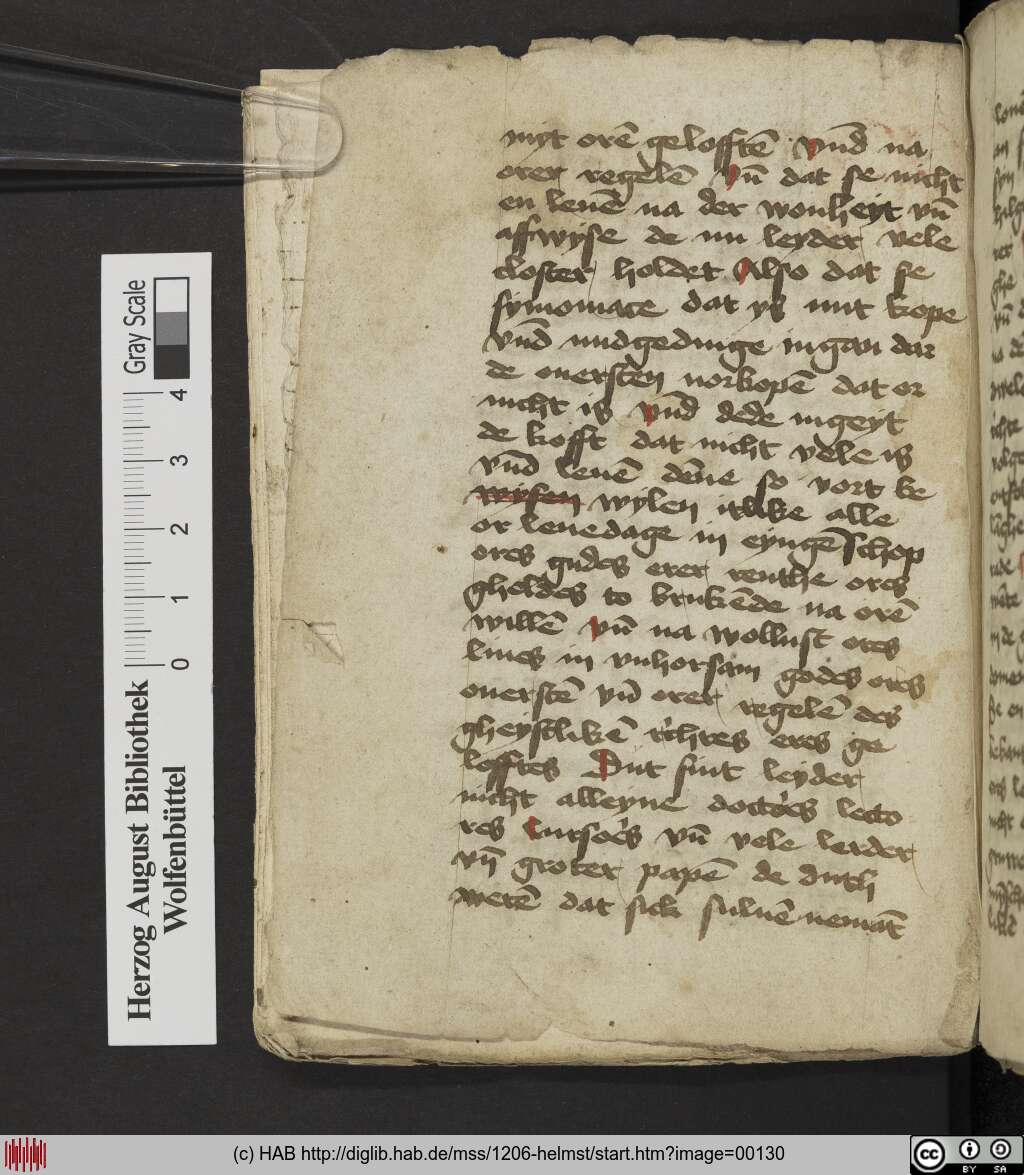 myt orē gelofftē vn̄d na
orer regelē Vn̄ dat se nicht
en leuē na der wonheyt vn̄
affwyse de nu leyder vele
closter holdet Also dat se
symoniace dat ys mit kope
vn̄d undgedinge ingan dar
de ouersten vorkopē dat or
nicht is vn̄d dede ingeyt
de kofft dat nicht vele is
vn̄d leuē dēne so vort ke
wysen wylen itlike alle
or leuedage in eyngē schop
ores gudes erer renthe ores
gheldes to brukēde na orē
willē vn̄ na wollust ores
liues in vnhorsam godes ores
ouerstē vn̄ orer regelē des
gheystlikē rechtes eres ge
lofftes Dut sint leyder
nicht alleyne doctores lecto
res cursores vn̄ vele leyder
vn̄ groter papē de duth
wetē dat sick suluē nemāt
Gray Scale
4
3
2
1
0
Herzog August Bibliothek
Wolfenbüttel
(c) HAB http://diglib.hab.de/mss/1206-helmst/start.htm?image=00130
cc BY SA